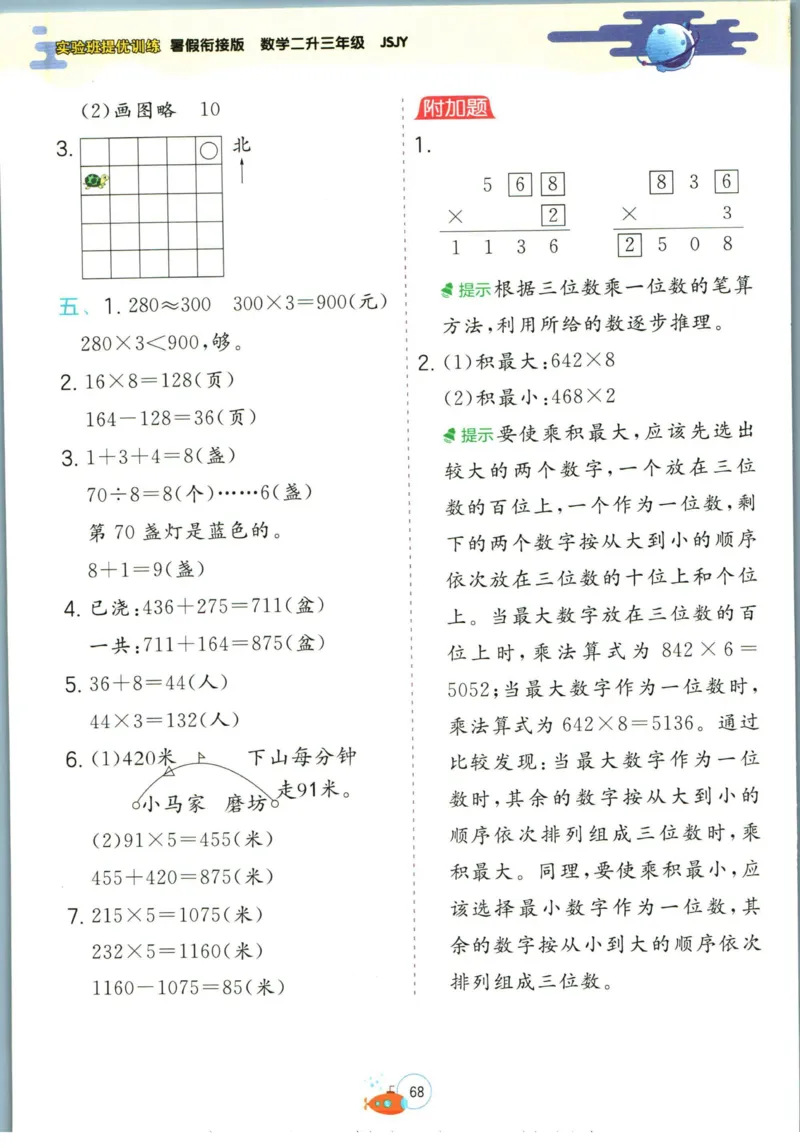 实验班提优训练 暑假衔接版 数学二升三年级 JSJY
(2)画图略 10
3.
北
五、1. 280≈300 300×3=900(元)
280×3<900,够。
2. 16×8=128(页)
164-128=36(页)
3. 1+3+4=8(盏)
70÷8=8(个)……6(盏)
第 70 盏灯是蓝色的。
8+1=9(盏)
4. 已浇:436+275=711(盆)
一共:711+164=875(盆)
5. 36+8=44(人)
44×3=132(人)
6. (1)420米 下山每分钟
走91米。
小马家 磨坊
(2)91×5=455(米)
455+420=875(米)
7. 215×5=1075(米)
232×5=1160(米)
1160-1075=85(米)
附加题
1.
5 6 8
× 2
1 1 3 6
8 3 6
× 3
2 5 0 8
提示 根据三位数乘一位数的笔算
方法,利用所给的数逐步推理。
2. (1)积最大:642×8
(2)积最小:468×2
提示 要使乘积最大,应该先选出
较大的两个数字,一个放在三位
数的百位上,一个作为一位数,剩
下的两个数字按从大到小的顺序
依次放在三位数的十位上和个位
上。当最大数字放在三位数的百
位上时,乘法算式为 842×6=
5052;当最大数字作为一位数时,
乘法算式为 642×8=5136。通过
比较发现:当最大数字作为一位
数时,其余的数字按从大到小的
顺序依次排列组成三位数时,乘
积最大。同理,要使乘积最小,应
该选择最小数字作为一位数,其
余的数字按从小到大的顺序依次
排列组成三位数。
68